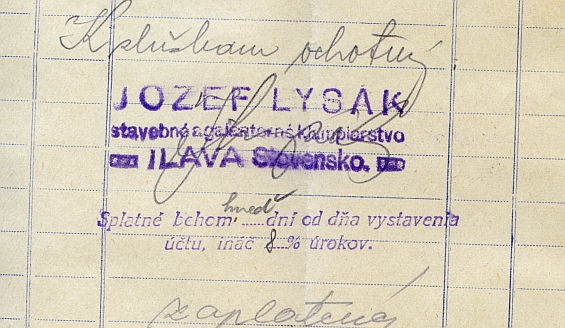 K službam ochotný
JOZEF LYSÁK
stavebné a galanterné klampiarstvo
ILAVA Slovensko.
Splatné behom hneď dní od dňa vystavenia
účtu, ináč 8 % úrokov.
zaplatený